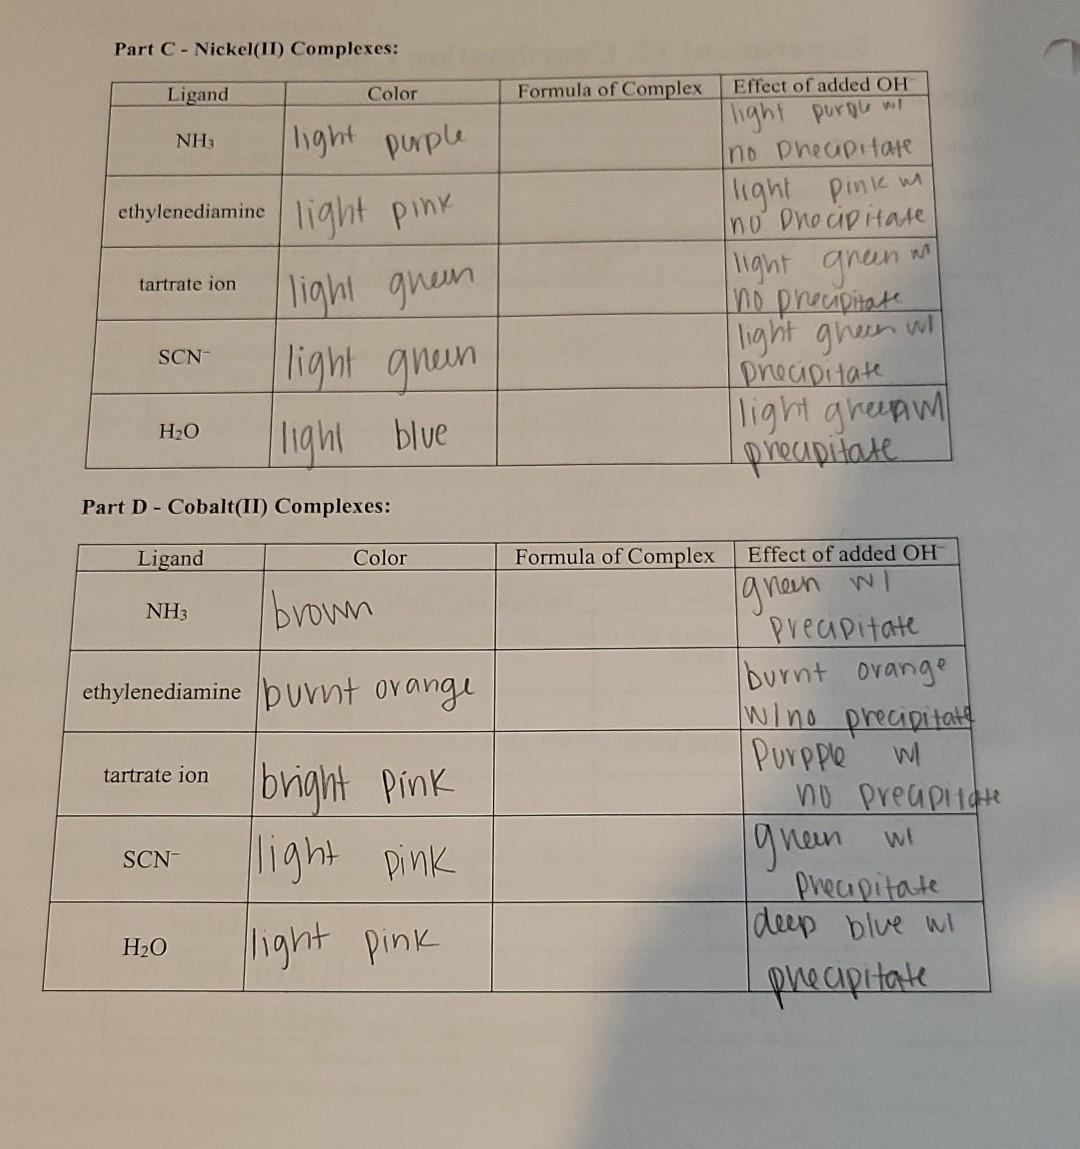 Part C - Nickel(II) Complexes:
Ligand Color Formula of Complex Effect of added OH⁻
NH₃ light purple light purple w/
no precipitate
ethylenediamine light pink light pink w/
no precipitate
tartrate ion light green light green w/
no precipitate
SCN⁻ light green light green w/
precipitate
H₂O light blue light green w/
precipitate
Part D - Cobalt(II) Complexes:
Ligand Color Formula of Complex Effect of added OH⁻
NH₃ brown green w/
precipitate
ethylenediamine burnt orange burnt orange
w/no precipitate
tartrate ion bright pink Purpple w/
no precipitate
SCN⁻ light pink green w/
precipitate
H₂O light pink deep blue w/
precipitate